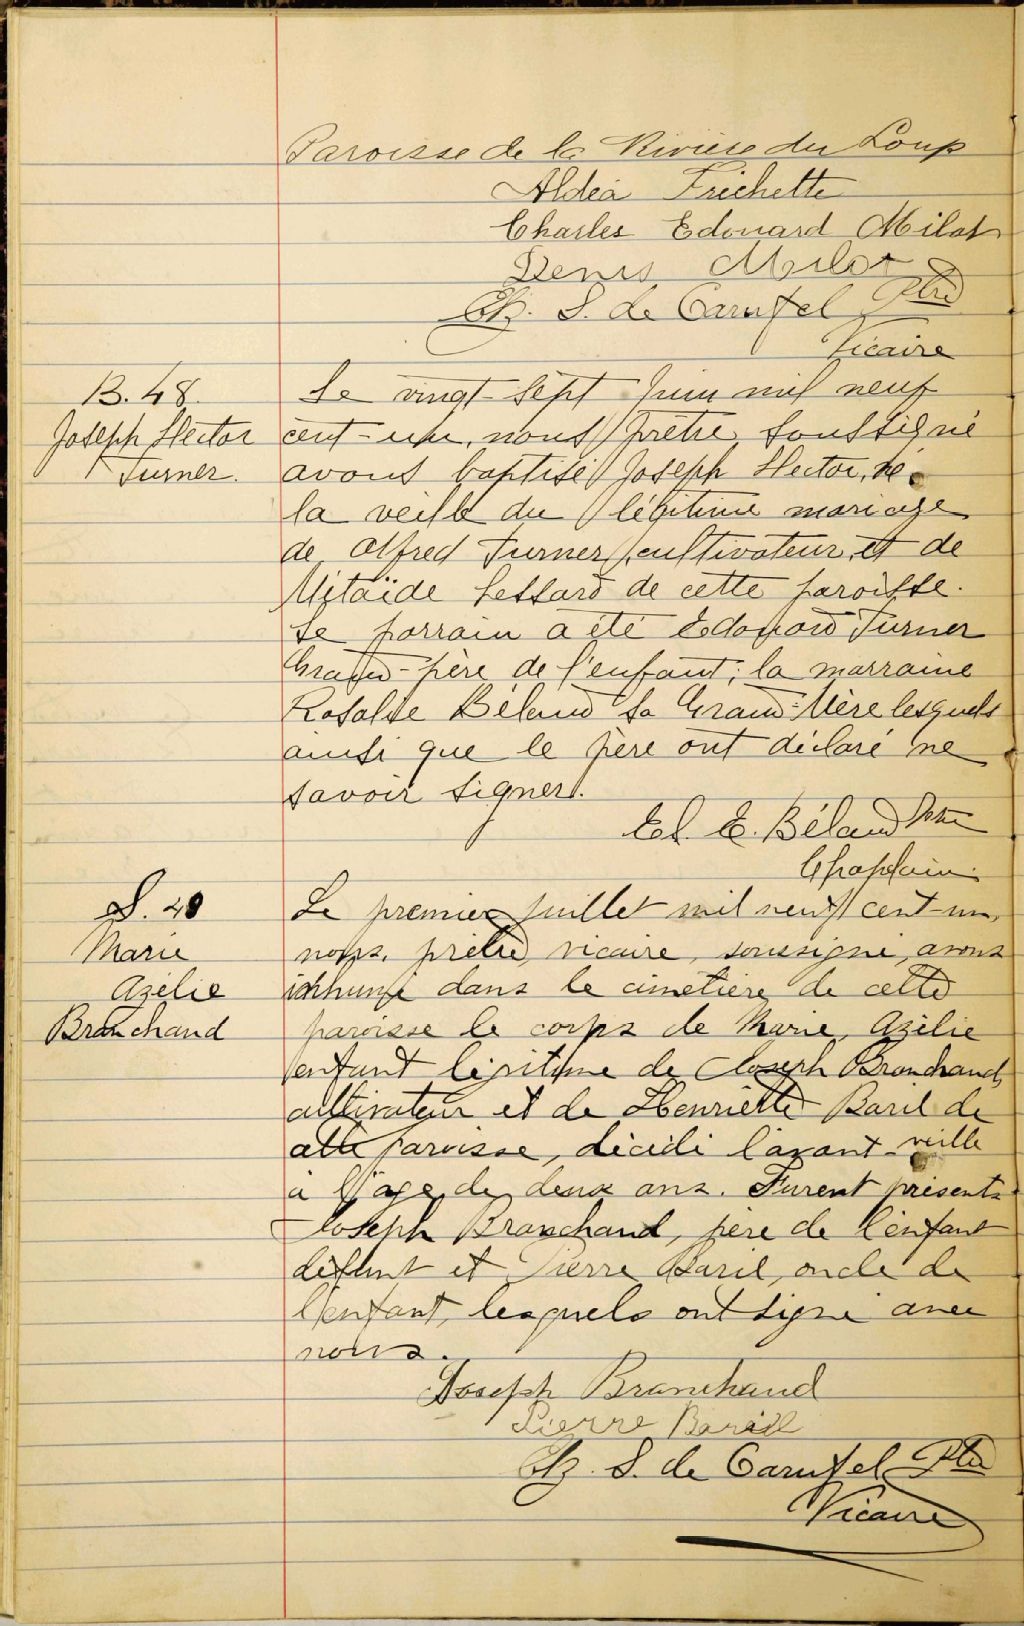 Paroisse de la Rivière du Loup
Aldéa Frichette
Charles Edouard Milot
Denis Milot
Chs. S. de Carufel Ptre
Vicaire
B. 48.
Joseph Hector
Turner.
Le vingt-sept Juin mil neuf
cent-un, nous Prêtre, soussigné
avons baptisé Joseph Hector, né
la veille du légitime mariage
de Alfred Turner, cultivateur, et de
Mitaïde Lessard de cette paroisse.
Le parrain a été Edouard Turner
Grand-père de l'enfant; la marraine
Rosalie Béland sa Grand-Mère lesquels
ainsi que le père ont déclaré ne
savoir signer.
El. E. Béland Ptre
Chaplain.
S. 40
Marie
Azélie
Branchand
Le premier juillet mil neuf cent-un,
nous, prêtre, vicaire, soussigné, avons
inhumé dans le cimetière de cette
paroisse le corps de Marie, Azélie
enfant légitime de Joseph Branchand,
cultivateur et de Henriette Baril de
cette paroisse, décidé l'avant-veille
à l'âge de deux ans. Furent présents
Joseph Branchand, père de l'enfant
défunt et Pierre Baril, oncle de
l'enfant, lesquels ont signé avec
nous.
Joseph Branchaud
Pierre Baril
Chs. S. de Carufel Ptre
Vicaire